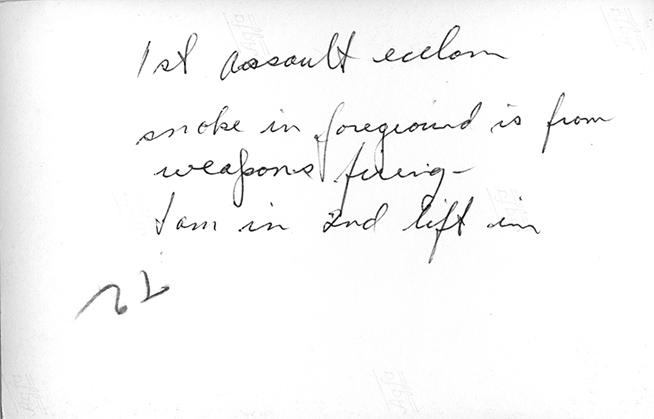 1st assault eclom
smoke in foreground is from
weapons firing-
I am in 2nd lift in
72